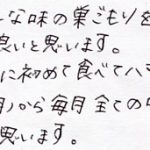 な味の巣ごもりを
良いと思います。
に初めて食べてハマ
月)から毎月全ての
思います。